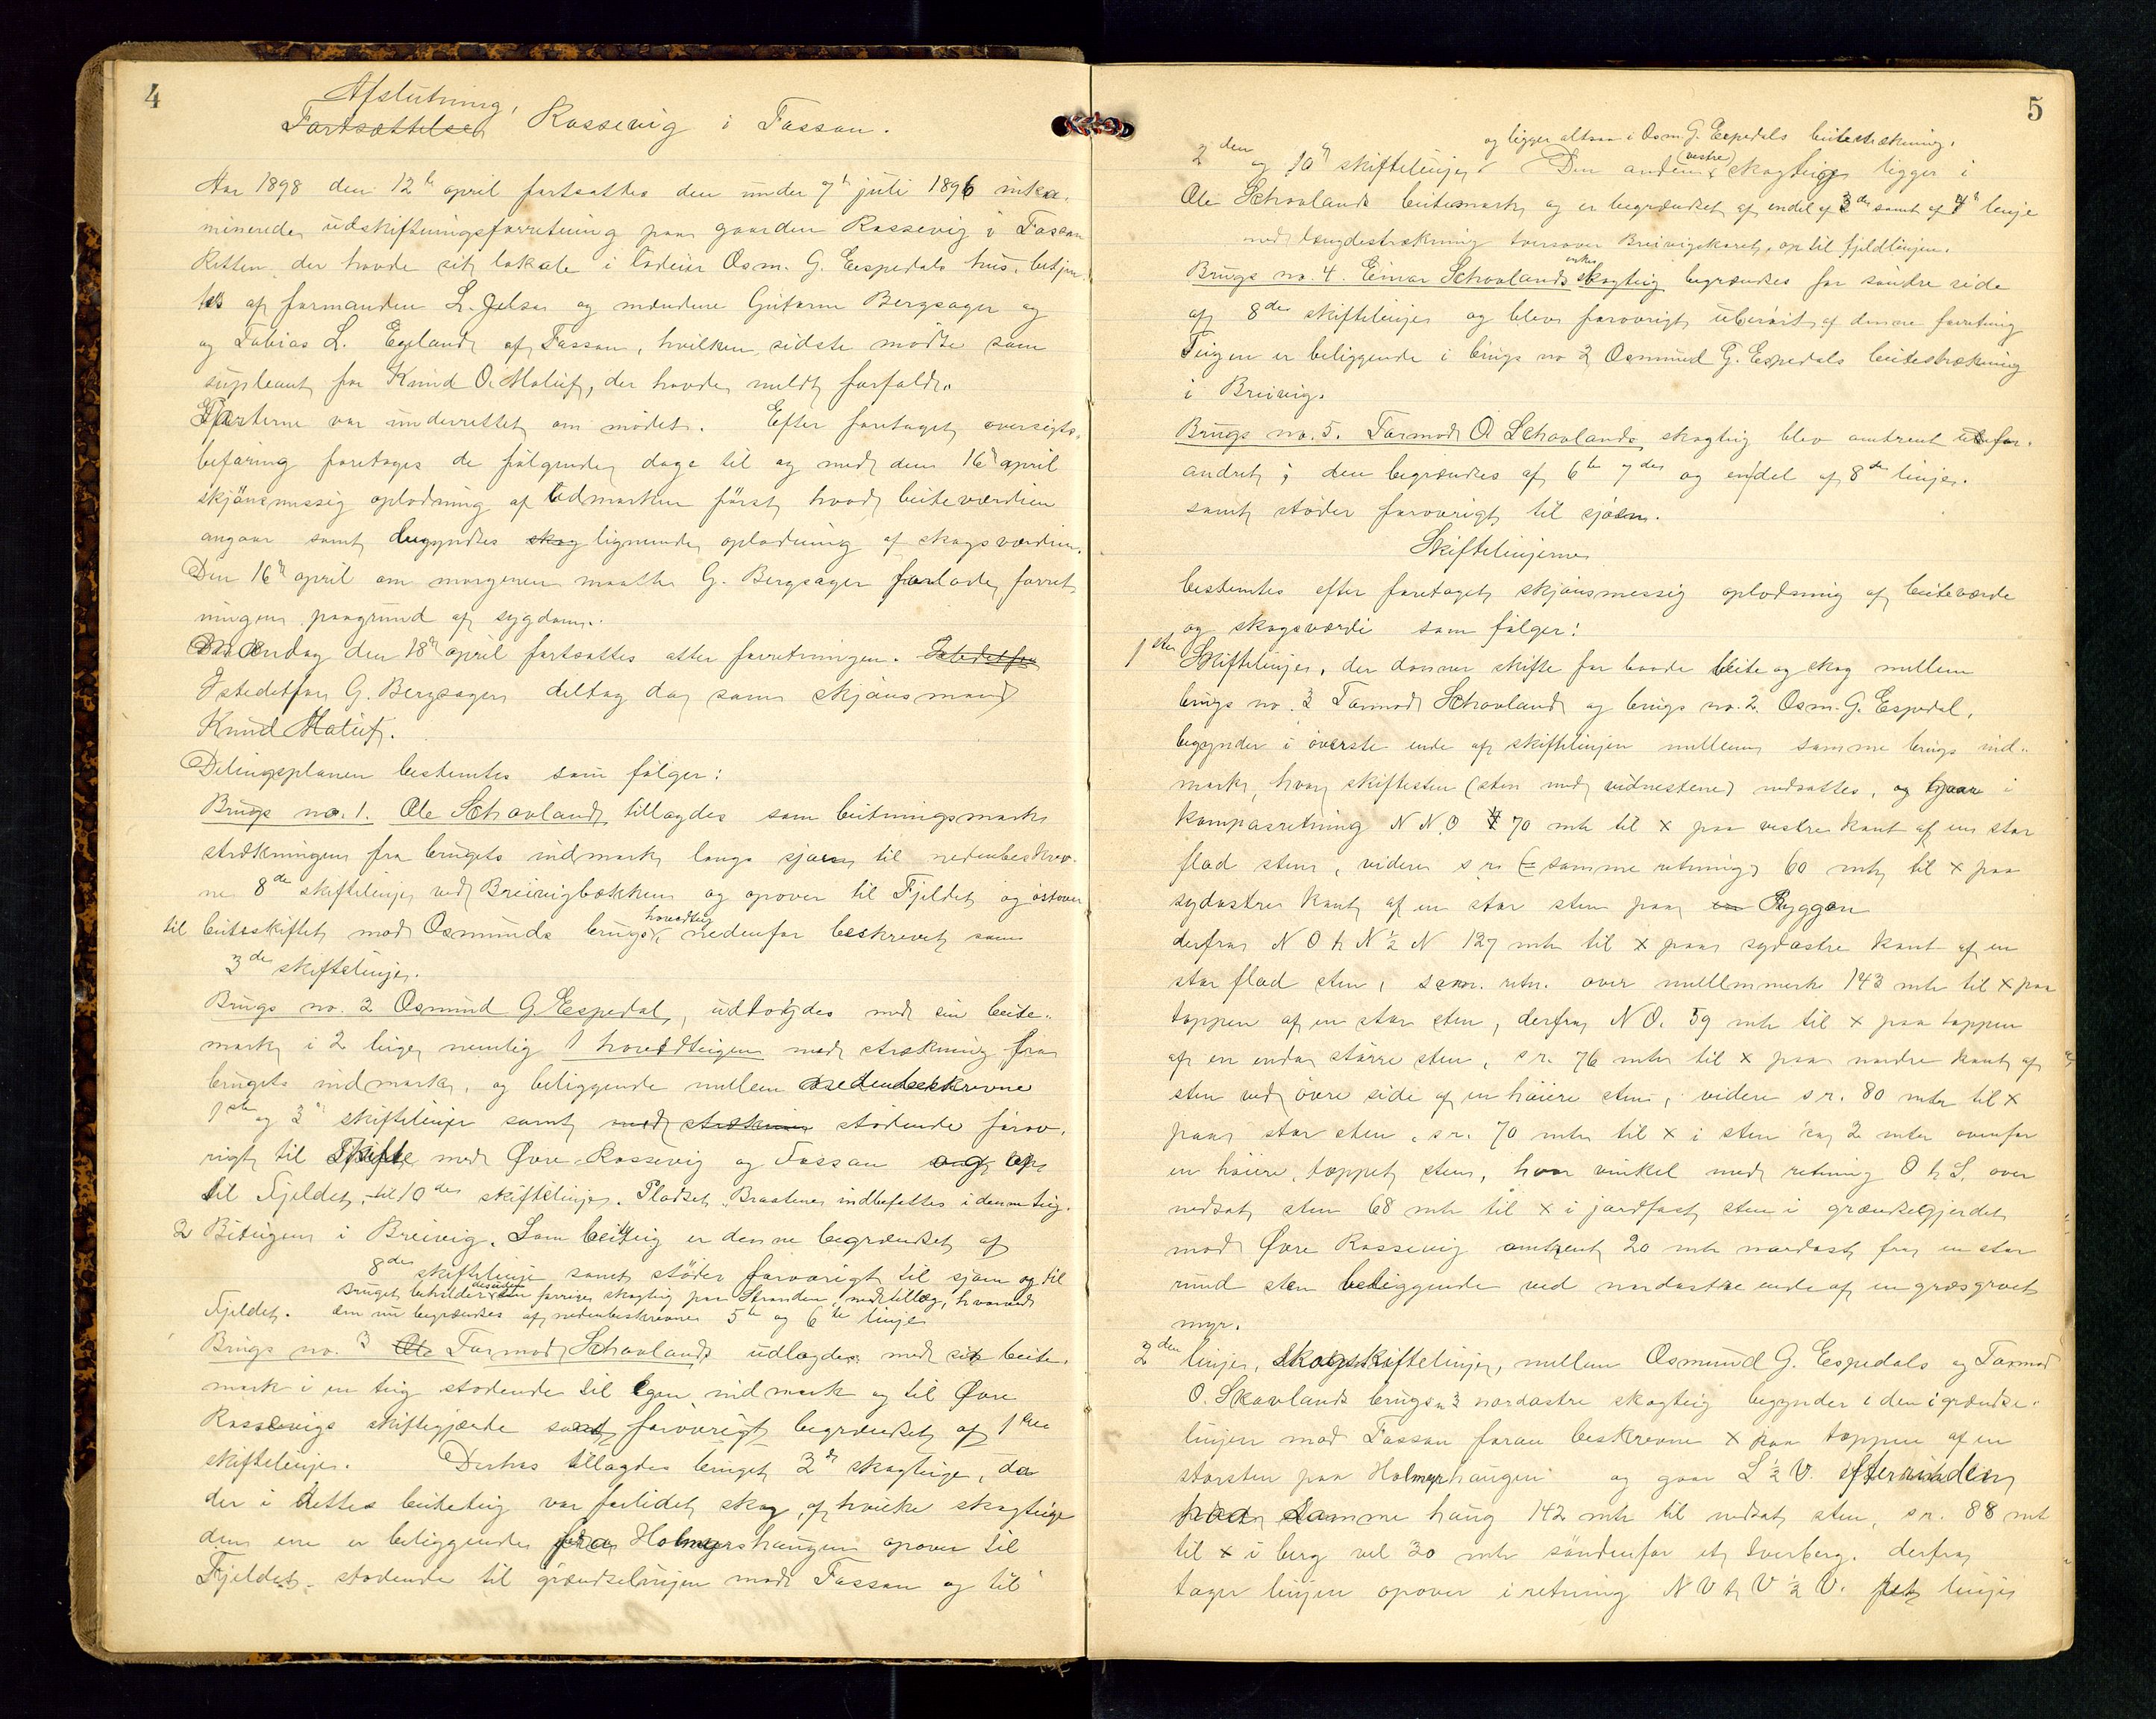 4
Afslutning,
Fortsættelse Rossevig i Fossan.
Aar 1898 den 12te april fortsattes den under 7de juli 1896 inka-
minerede udskiftningsforretning paa gaarden Rossevig i Fossan
Retten, der havde sit lokale i lodeier Osm. G. Eespedals hus, betjen-
tes af formanden L. Jelsa og mændene Guttorm Bergsager og
og Tobias L. Eeland af Fossan, hvilken sidste mödte som
supleant for Knud O. Maluf, der havde meldt forfald.
Parterne var underrettet om mödet. Efter foretaget oversigts-
befaring foretoges de fölgende dage til og med den 16de april
skjönsmessig oplodning af udmarken först hvad beiteværdien
angaar samt begyndtes skog lignende oplodning af skogsværdien.
Den 16de april om morgenen maatte G. Bergsager forlade forret-
ningen paagrund af sygdom.
Mandag den 18de april fortsattes atter forretningen. Istedetfor
Istedetfor G. Bergsager deltog da som skjönsmand
Knud Maluf.
Delingsplanen bestemtes som fölger:
Brugs no. 1. Ole Schovland tillagdes som beitningsmark
strækningen fra brugets indmark langs sjöen til nedenbeskrev-
ne 8de skiftelinje ved Breivigbækken og opover til Fjeldet og östover
til beiteskiftet mod Osmunds brugs hovedteig nedenfor beskrevet som
3de skiftelinje.
Brugs no. 2 Osmund G. Eespedal, udlagdes med sin beite-
mark i 2 teiger nemlig 1 hovedteigen med strækning fra
brugets indmark, og beliggende mellem nedenbeskrevne
1ste og 3de skiftelinjer samt med strækning stödende forov-
rigt til skifte med Övre Rossevig og Fossan og op
til Fjeldet, til 10de skiftelinje. Pladset "Braatene indbefattes i denne teig.
2 Biteigen i Breivig. Som beiteig er denne begrændset af
8de skiftelinje samt stöder forovrigt til sjöen og til
Bruget beholder desuden sin forrige skogteig paa Stranden, med tillæg, hvorved
Fjeldet. den nu begrændses af nedenbeskrevne 5te og 6te linje
Brugs no. 3 Ole Tormod Schovlands udlagdes med sit beite-
mark i en teig stödende til egen indmark og til Övre
Rossevigs skiftegjærde samt forövrigt begrændset af 1ste
skiftelinje. Derhos tillagdes bruget 2de skogteige, da
der i dettes beiteteig var forlidet skog, af hvilke skogteige
den ene er beliggende fra Holmyrshaugen opover til
Fjeldet, stödende til grændselinjen mod Fossan og til
5
og ligger altsaa i Osm. G. Eespedals beitestrækning.
2den og 10de skiftelinje Den anden (vestre) skogteig ligger i
Ole Schovlands beitemark og er begrændset af endel af 3de samt af 4de linje
med længdestrækning tversover Breivigskaret, op til fjeldlinjen.
Brugs no. 4. Einar Schovlands skogteig begrændses for söndre side
af 8de skiftelinje og blev forovrigt uberört af denne forretning
Teigen er beliggende i brugs no 2 Osmund G. Espedals beitestrækning
i Breivig.
Brugs no. 5. Tormod O Schovlands skogteig blev omtrent ufor-
andret; den begrændses af 6te 7de og endel af 8de linje.
samt stöder forovrigt til sjöen.
Skiftelinjerne
bestemtes efter foretaget skjönsmessig oplodning af beiteværde
og skogsværdi som fölger:
1ste Skiftelinje, der danner skifte for baade beite og skog mellem
brugs no. 3 Tormod Schovland og brugs no. 2. Osm. G. Espedal,
begynder i överste ende af skiftelinjen mellem samme brugs ind-
mark, hvor skiftesten (sten med vidnestene) nedsattes, og gaar i
kompasretning N N.O 70 mtr til x paa vestre kant af en stor
flad sten, videre s r. (= samme retning) 60 mtr til x paa
sydostre kant af en stor sten paa Ryggen
derfra N O t N ½ N 127 mtr til x paa sydostre kant af en
stor flad sten, sam. retn. over mellemmerke 143 mtr til x paa
toppen af en stor sten, derfra N O. 59 mtr til x paa toppen
af en enda större sten, s r. 76 mtr til x paa nordre kant af
sten ved övre side af en höiere sten, videre s r. 80 mtr til x
paa stor sten, s r. 70 mtr til x i sten ca 2 mtr ovenfor
en höiere, toppet sten, hvor vinkel med retning O t S. over
nedsat sten 68 mtr til x i jordfast sten i grændsegjerdet
mod Övre Rossevig omtrent 20 mtr nordost fra en stor
rund sten beliggende ved nordostre ende af en græsgroet
myr.
2den linje, skogskiftelinje, mellem Osmund G. Eespedals og Tormod
O. Skovlands brugs 3 nordostre skogteig begynder i den i grændse-
linjen mod Fossan foran beskrevne x paa toppen af en
storsten paa Holmyrshaugen og gaar S ½ V. efter
paa samme haug 142 mtr til nedsat sten, s r. 88 mtr
til x i berg vel 30 mtr söndenfor et tverberg. derfra
tager linjen opover i retning N V t V ½ V. linje